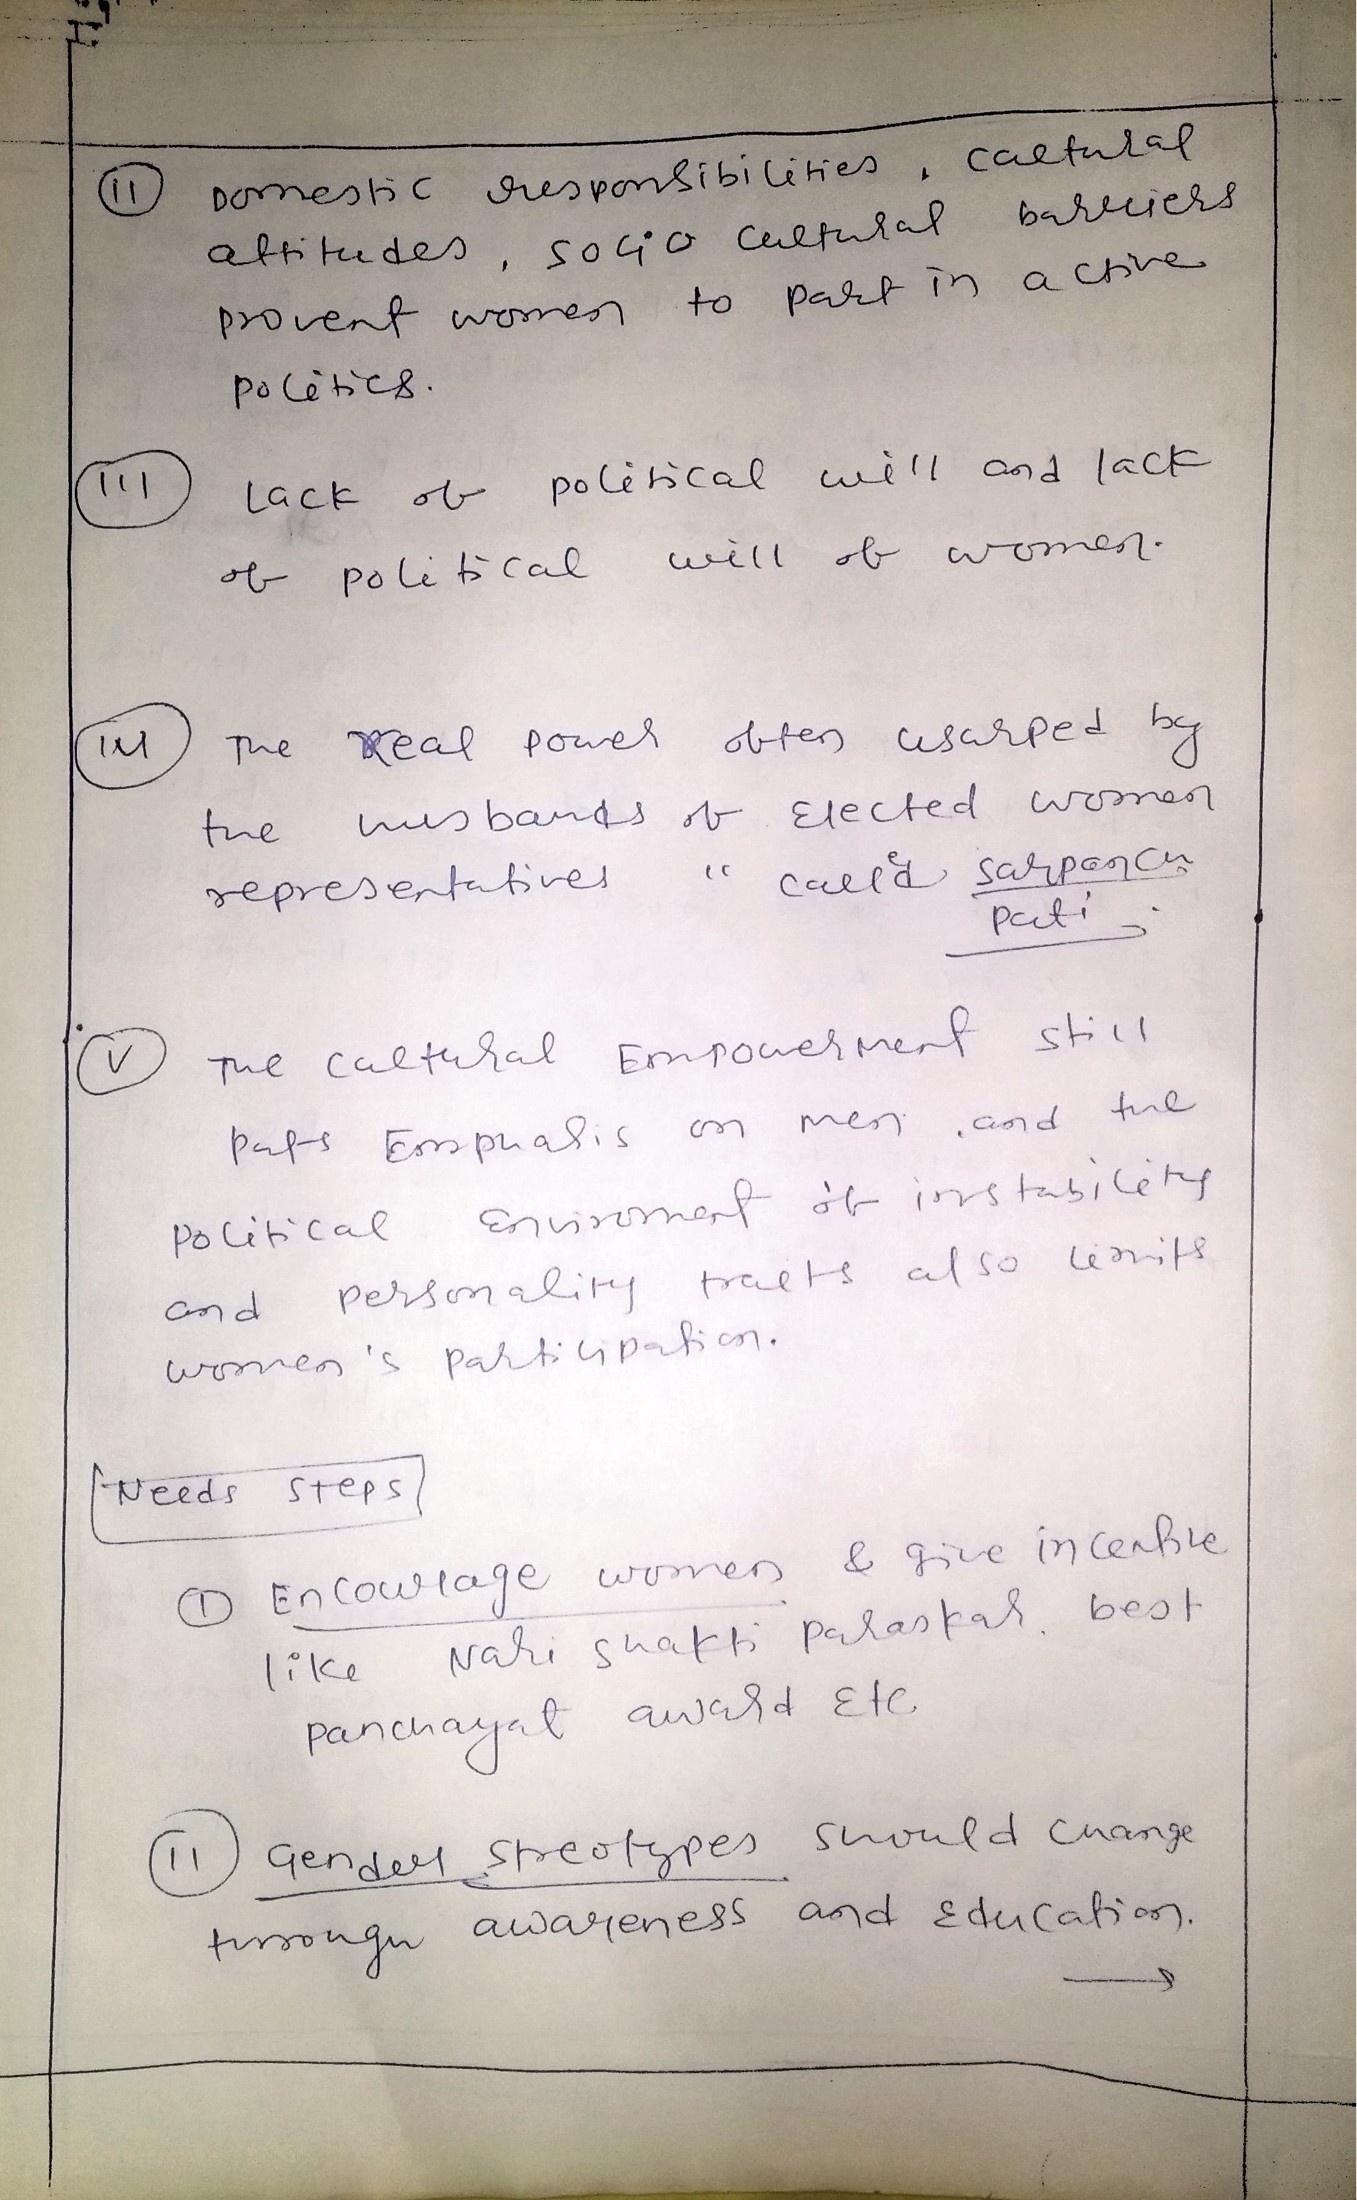 (ii) Domestic responsibilities, cultural
attitudes, socio cultural barriers
provent women to part in active
politics.
(iii) Lack of political will and lack
of political will of women.
(iv) The real power often usurped by
the husbands of Elected women
representatives " called sarpanch
pati.
(v) The cultural Empowerment still
puts Emphasis on men, and the
political Enviroment of instability
and personality traits also limits
women's participation.
Needs Steps
(I) Encourage women & give incentive
like Nari shakti puraskar, best
panchayat award Etc
(II) Gender streotypes should change
through awareness and Education.
→